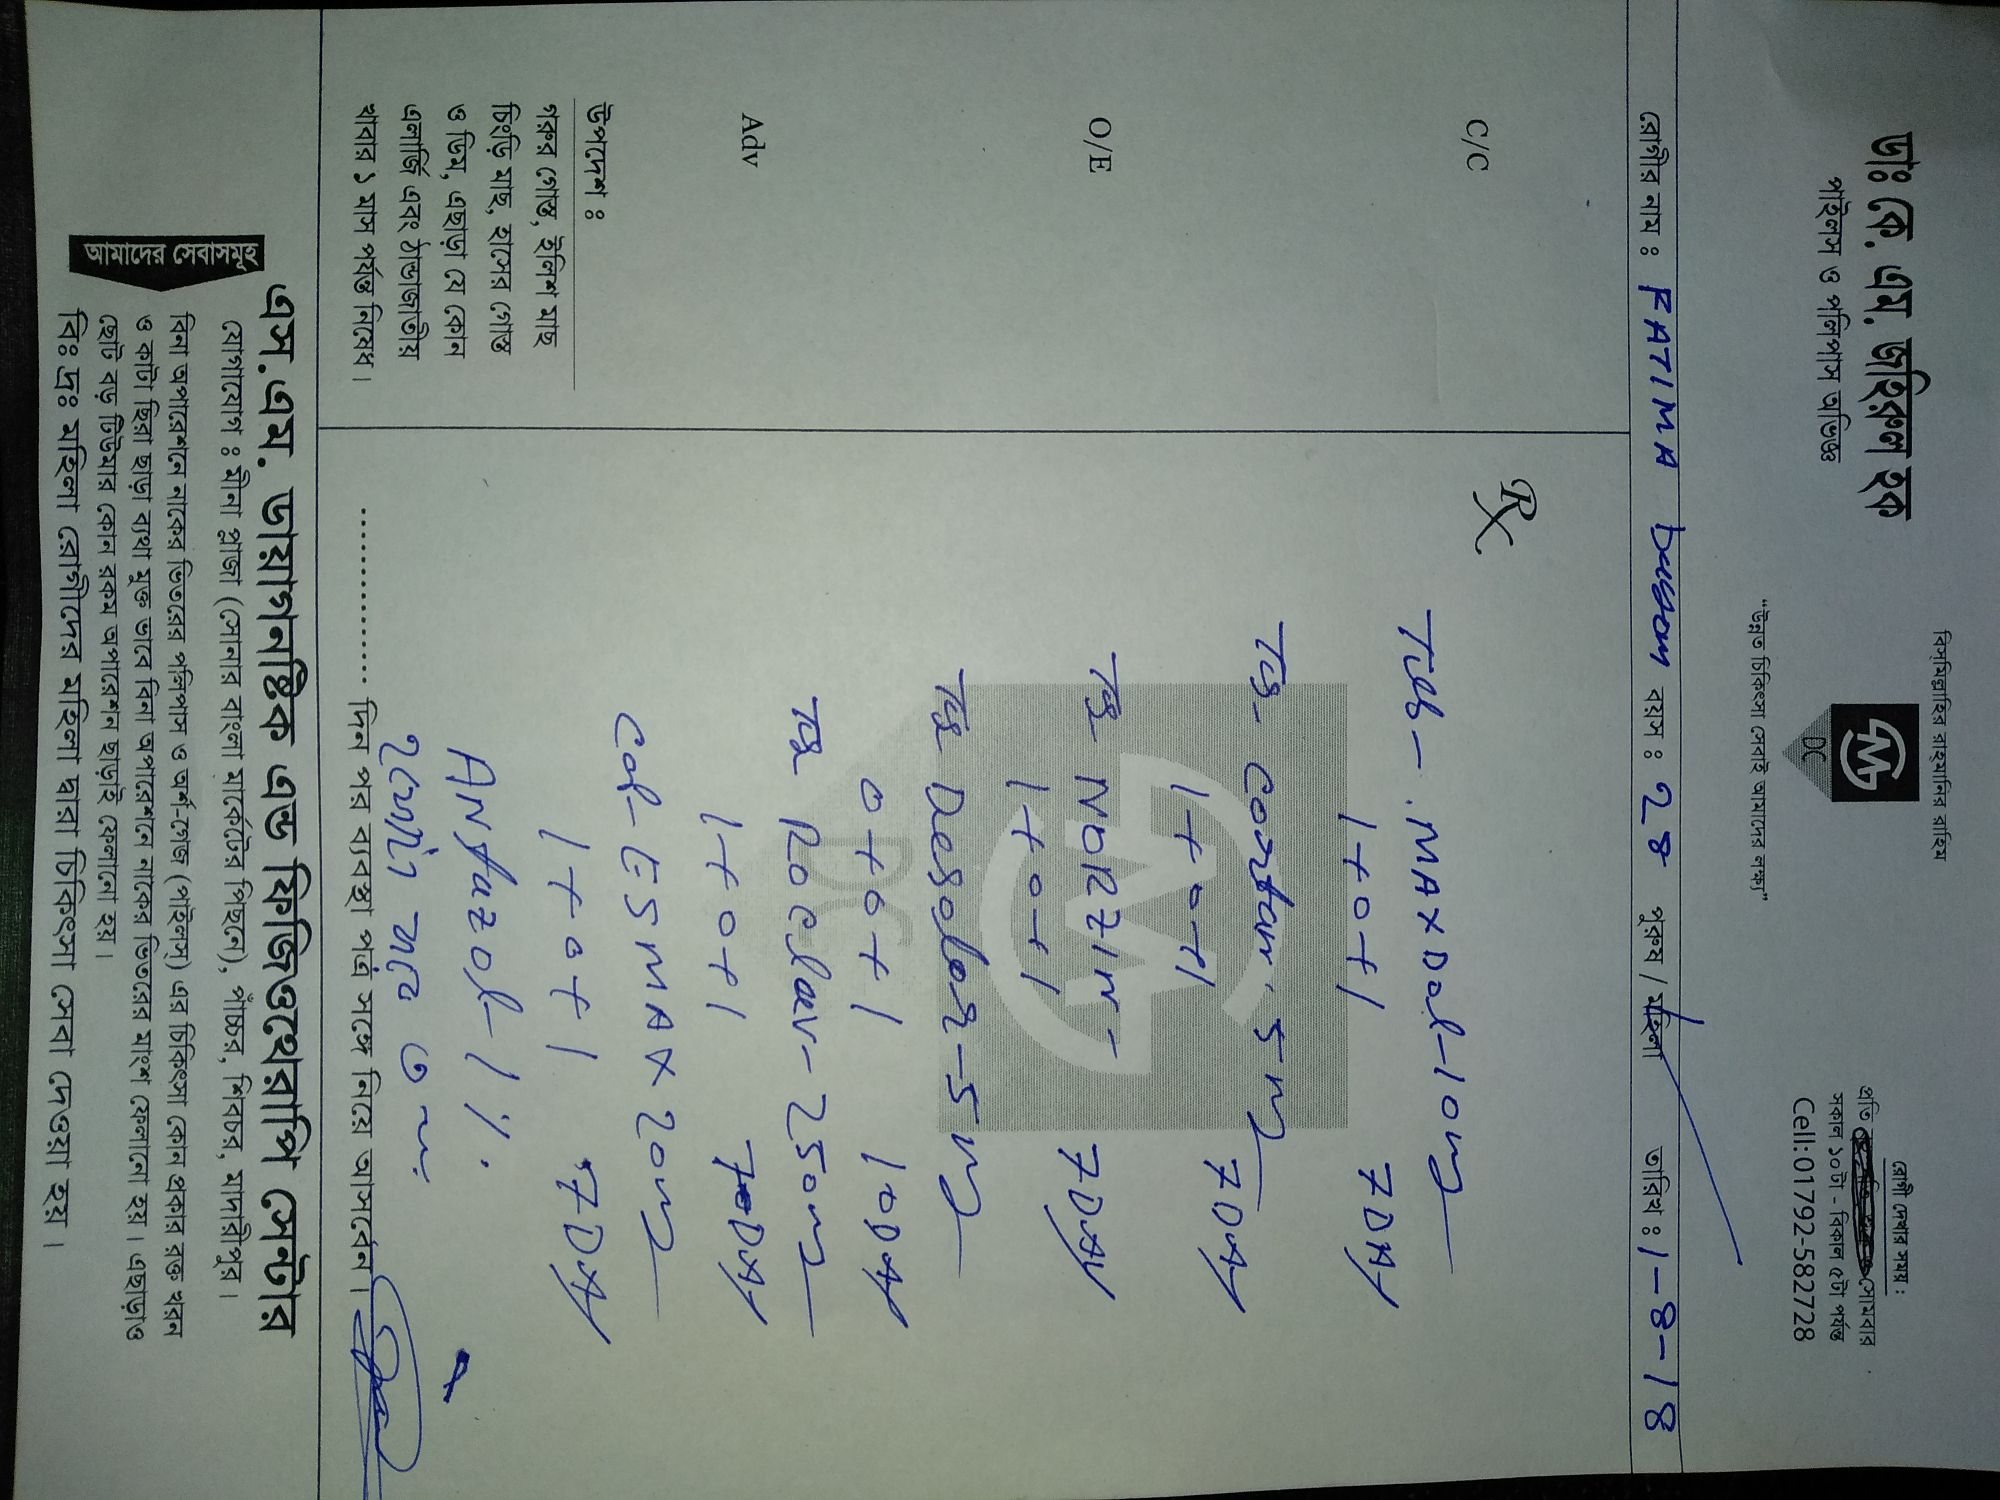 বিসমিল্লাহির রাহমানির রাহিম
ডাঃ কে. এম. জহিরুল হক
পাইলস ও পলিপাস অভিজ্ঞ
DC
"উন্নত চিকিৎসা সেবাই আমাদের লক্ষ্য"
রোগী দেখার সময় :
প্রতি সোমবার
সকাল ১০টা - বিকাল ৫টা পর্যন্ত
Cell:01792-582728
রোগীর নাম : FATIMA বয়স : 28 পুরুষ / মহিলা তারিখ : 1-8-18
C/C
O/E
Adv
উপদেশ :
গরুর গোস্ত, ইলিশ মাছ
চিংড়ি মাছ, হাসের গোস্ত
ও ডিম, এছাড়া যে কোন
এলার্জি এবং ঠান্ডাজাতীয়
খাবার ১ মাস পর্যন্ত নিষেধ।
Rx
Tab - MAXDal-10mg
1+0+1 7DAy
Tab- Cortan 5mg
1+0+1 7DAy
Tab NORZIM-
1+0+1 7DAy
Tab Deslor-5mg
0+0+1 10DAy
Tab Roclav-250mg
1+0+1 7DAy
Cap-ESMAX 20mg
1+0+1 7DAy
ANtazol-1%.
.................. দিন পর ব্যবস্থা পত্র সঙ্গে নিয়ে আসবেন।
এস.এম. ডায়াগনষ্টিক এন্ড ফিজিওথেরাপি সেন্টার
যোগাযোগ : মীনা প্লাজা (সোনার বাংলা মার্কেটের পিছনে), পাঁচ্চর, শিবচর, মাদারীপুর।
আমাদের সেবাসমূহ
বিনা অপারেশনে নাকের ভিতরের পলিপাস ও অর্শ-গেজ (পাইলস্) এর চিকিৎসা কোন প্রকার রক্ত খরন
ও কাটা ছিরা ছাড়া ব্যথা মুক্ত ভাবে বিনা অপারেশনে নাকের ভিতরের মাংশ ফেলানো হয়। এছাড়াও
ছোট বড় টিউমার কোন রকম অপারেশন ছাড়াই ফেলানো হয়।
বিঃ দ্রঃ মহিলা রোগীদের মহিলা দ্বারা চিকিৎসা সেবা দেওয়া হয়।